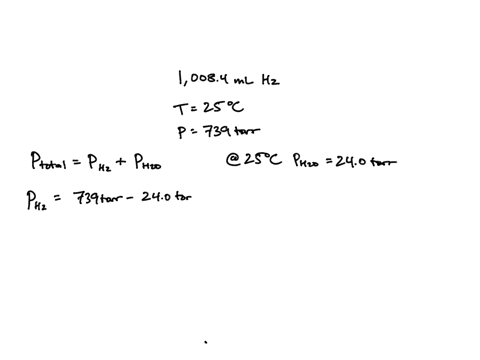 1,008.4 mL H2
T = 25°C
P = 739 torr
Ptotal = PH2 + PH2O @ 25°C PH2O = 24.0 torr
PH2 = 739 torr - 24.0 tor